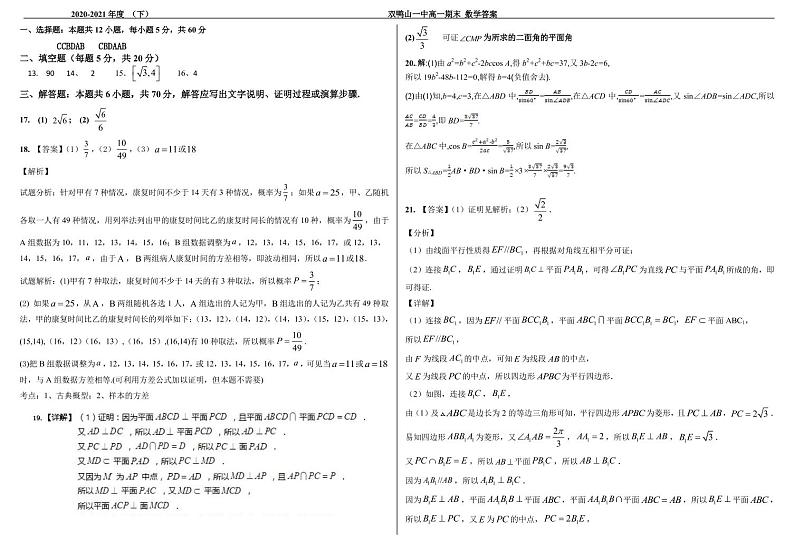 2020-2021年度 （下） 双鸭山一中高一期末 数学答案
一、选择题：本题共 12 小题，每小题 5 分，共 60 分
CCBDAB CBDAAB
二、填空题（每题 5 分，共 20 分）
13. 90 14、 2 15. [√3,4] 16、4
三、解答题：本题共 6 小题，共 70 分，解答应写出文字说明、证明过程或演算步骤.
17. (1) 2√6； (2) √6/6
18. 【答案】（1）3/7，（2）10/49，（3）a=11或18
【解析】
试题分析：针对甲有 7 种情况，康复时间不少于 14 天有 3 种情况，概率为3/7；如果a=25，甲、乙随机
各取一人有 49 种情况，用列举法列出甲的康复时间比乙的康复时间长的情况有 10 种，概率为10/49，由于
A 组数据为 10，11，12，13，14，15，16；B 组数据调整为a，12，13，14，15，16，17，或 12，13，
14，15，16，17，a，由于A，B两组病人康复时间的方差相等，即波动相同，所以a=11或18.
试题解析：(1)甲有 7 种取法，康复时间不少于 14 天的有 3 种取法，所以概率P=3/7；
(2) 如果a=25，从A，B两组随机各选 1 人，A组选出的人记为甲，B组选出的人记为乙共有 49 种取
法，甲的康复时间比乙的康复时间长的列举如下：（13，12），（14，12），（14，13），（15，12），（15，13），
(15,14)，（16，12）（16，13），（16，15），(16,14)有 10 种取法，所以概率P=10/49.
(3)把 B 组数据调整为a，12，13，14，15，16，17，或 12，13，14，15，16，17，a，可见当a=11或a=18
时，与 A 组数据方差相等.(可利用方差公式加以证明，但本题不需要)
考点：1、古典概型；2、样本的方差
19.【详解】（1）证明：因为平面ABCD⊥平面PCD ，且平面ABCD∩平面PCD=CD .
又AD⊥DC ，所以AD⊥平面PCD ，所以AD⊥PC .
又PC⊥PD ，AD∩PD=D ，所以PC⊥面PAD .
又MD⊂平面PAD ，所以PC⊥MD .
又因为M 为AP 中点，PD=AD ，所以MD⊥AP ，且AP∩PC=P .
所以MD⊥平面PAC ，又MD⊂平面MCD ，
所以平面ACP⊥面MCD .
(2) √3/3 可证∠CMP为所求的二面角的平面角
20.解:(1)由 a²=b²+c²-2bccos A,得 b²+c²+bc=37,又 3b-2c=6,
所以 19b²-48b-112=0,解得 b=4(负值舍去).
(2)由(1)知,b=4,c=3,在△ABD 中,BD/sin60°=AB/sin∠ADB,在△ACD 中,CD/sin60°=AC/sin∠ADC,又 sin∠ADB=sin∠ADC,所以
AC/AB=CD/BD=4/3,即 BD=3√37/7.
在△ABC 中,cos B=(c²+a²-b²)/2ac=5/√37,所以 sin B=2√3/√37.
所以 S△ABD=1/2AB·BD·sin B=1/2×3×3√37/7×2√3/√37=9√3/7.
21. 【答案】（1）证明见解析；（2）√2/2.
【分析】
（1）由线面平行性质得EF//BC₁，再根据对角线互相平分可证；
（2）连接B₁C，B₁E，通过证明B₁C⊥平面PA₁B₁，可得∠B₁PC为直线PC与平面PA₁B₁所成的角，即
可得证.
【详解】
（1）连接BC₁，因为EF//平面BCC₁B₁，平面ABC₁∩平面BCC₁B₁=BC₁，EF⊂平面 ABC₁，
所以EF//BC₁，
由F为线段AC₁的中点，可知E为线段AB的中点，
又E为线段PC的中点，所以四边形APBC为平行四边形.
（2）如图，连接B₁C，B₁E，
由（1）及△ABC是边长为 2 的等边三角形可知，平行四边形APBC为菱形，且PC⊥AB，PC=2√3.
易知四边形ABB₁A₁为菱形，又∠A₁AB=2π/3，AA₁=2，所以B₁E⊥AB，B₁E=√3.
又PC∩B₁E=E，所以AB⊥平面PB₁C，所以AB⊥B₁C.
因为A₁B₁//AB，所以A₁B₁⊥B₁C.
因为B₁E⊥AB，平面AA₁B₁B⊥平面ABC，平面AA₁B₁B∩平面ABC=AB，所以B₁E⊥平面ABC，
所以B₁E⊥PC，又E为PC的中点，PC=2B₁E，